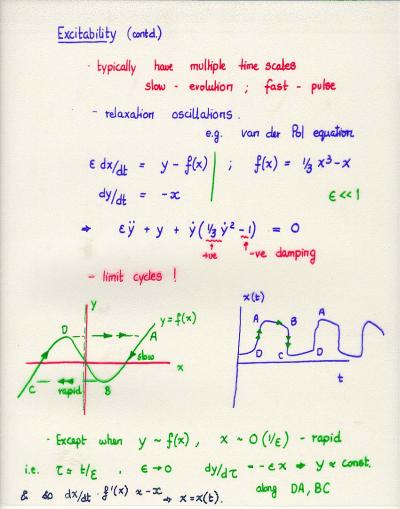 Excitability (contd.)
- typically have multiple time scales
slow - evolution ; fast - pulse
- relaxation oscillations.
e.g. van der Pol equation
ε dx/dt = y - f(x) ; f(x) = 1/3 x³ - x
dy/dt = -x ε << 1
⇒ εÿ + y + ẏ(1/3 ẏ² - 1) = 0
+ve -ve damping
- limit cycles !
y x(t)
D A y = f(x) A B A
slow x D C D
C rapid B t
- Except when y ~ f(x), x ~ O(1/ε) - rapid
i.e. τ = t/ε, ε → 0 dy/dτ = -εx ⇒ y ≈ const.
along DA, BC
& so dx/dt · f'(x) ≈ -x ⇒ x = x(t).